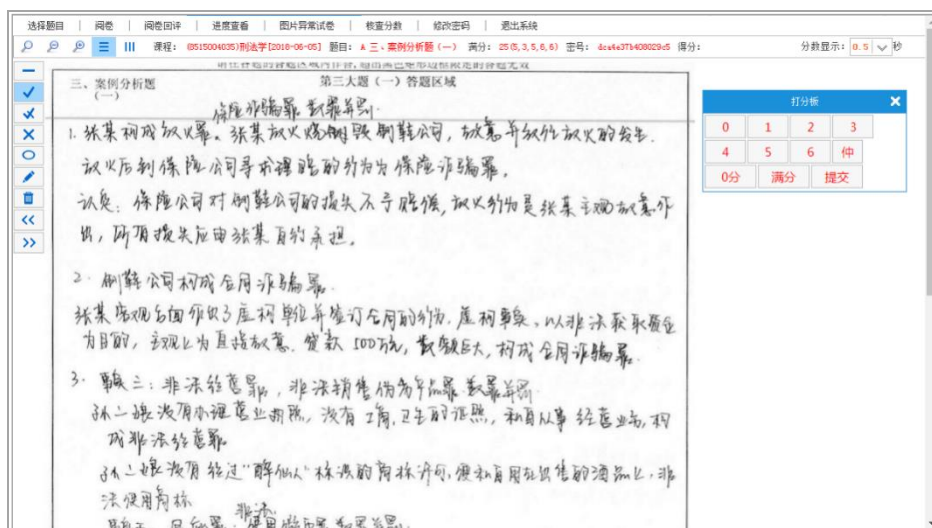 选择题目 | 阅卷 | 阅卷回评 | 进度查看 | 图片异常试卷 | 核查分数 | 修改密码 | 退出系统
课程: (0515004035)刑法学[2018-06-05] 题目: A 三、案例分析题(一) 满分: 25(5,3,5,6,6) 密号: dca4e37b408029c5 得分: 分数显示: 0.5 秒
打分板
0 1 2 3
4 5 6 仲
0分 满分 提交
三、案例分析题 第三大题(一)答题区域
(一)
保险诈骗罪 数罪并罚.
1. 张某构成放火罪。张某放火烧制鞋公司, 故意并放任放火的发生.
放火后到保险公司寻求理赔的行为为保险诈骗罪。
认定: 保险公司对制鞋公司的损失不予赔偿, 放火行为是张某主观故意作
出, 所有损失应由张某自行承担.
2. 制鞋公司构成合同诈骗罪.
张某客观方面作出了虚构单位并签订合同的行为, 虚构事实、以非法获取资金
为目的, 主观上为直接故意. 贷款500万元, 数额巨大, 构成合同诈骗罪.
3. 事实三: 非法经营罪, 非法销售伪劣产品罪 数罪并罚.
孙二娘没有办理营业执照, 没有工商、卫生的证照, 私自从事经营业务, 构
成非法经营罪.
孙二娘没有经过“醉仙人”标识的商标许可, 便私自用在出售的酒品上, 非
法使用商标